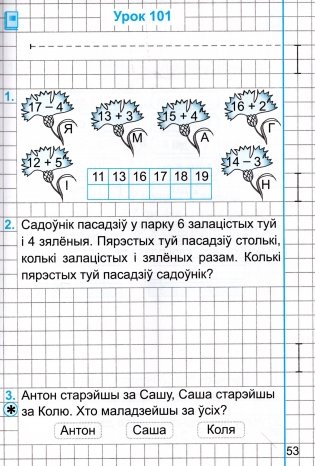 Урок 101
1.
17 – 4
13 + 3
15 + 4
16 + 2
Я
М
А
Г
12 + 5
14 – 3
І
Н
11 13 16 17 18 19
2. Садоўнік пасадзіў у парку 6 залацістых туй
і 4 зялёныя. Пярэстых туй пасадзіў столькі,
колькі залацістых і зялёных разам. Колькі
пярэстых туй пасадзіў садоўнік?
3. Антон старэйшы за Сашу, Саша старэйшы
* за Колю. Хто маладзейшы за ўсіх?
Антон Саша Коля
53